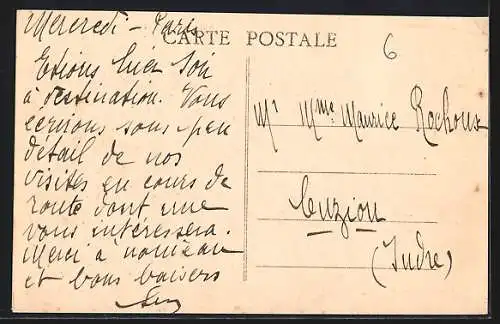 Mercredi - Paris
CARTE POSTALE
6
Etions hier soir
à destination. Vous
ecrirons sous peu
détail de nos
visites en cours de
route dont une
vous intéressera.
Merci à nouveau
et bons baisers
Mr Mme Maurice Rochoux
Cuzion
(Indre)